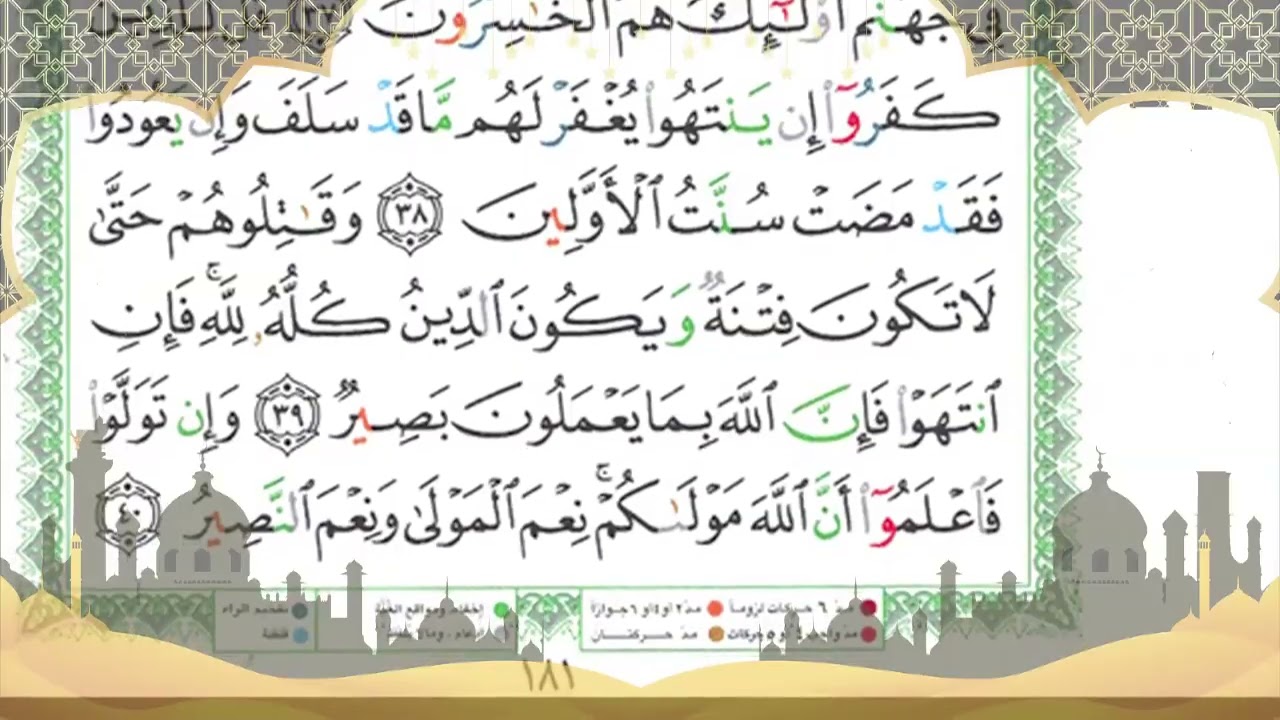 فِى جَهَنَّمَ أُو۟لَـٰٓئِكَ هُمُ ٱلْخَـٰسِرُونَ ﴿٣٧﴾ قُل لِّلَّذِينَ
كَفَرُوٓا۟ إِن يَنتَهُوا۟ يُغْفَرْ لَهُم مَّا قَدْ سَلَفَ وَإِن يَعُودُوا۟
فَقَدْ مَضَتْ سُنَّتُ ٱلْأَوَّلِينَ ﴿٣٨﴾ وَقَـٰتِلُوهُمْ حَتَّىٰ
لَا تَكُونَ فِتْنَةٌ وَيَكُونَ ٱلدِّينُ كُلُّهُۥ لِلَّهِ ۚ فَإِنِ
ٱنتَهَوْا۟ فَإِنَّ ٱللَّهَ بِمَا يَعْمَلُونَ بَصِيرٌ ﴿٣٩﴾ وَإِن تَوَلَّوْا۟
فَٱعْلَمُوٓا۟ أَنَّ ٱللَّهَ مَوْلَىٰكُمْ ۚ نِعْمَ ٱلْمَوْلَىٰ وَنِعْمَ ٱلنَّصِيرُ ﴿٤٠﴾
مدّ ٦ حركات لزوماً مدّ ٢ أو ٤ أو ٦ جوازاً إخفاء، ومواقع الغُنَّة تفخيم الراء
مدّ واجب ٤ أو ٥ حركات مدّ حركتان إدغام، ومالا يُلفَظ قلقلة
١٨١